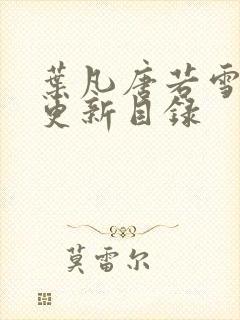 葉凡唐若雪
更新目録
莫雷尔